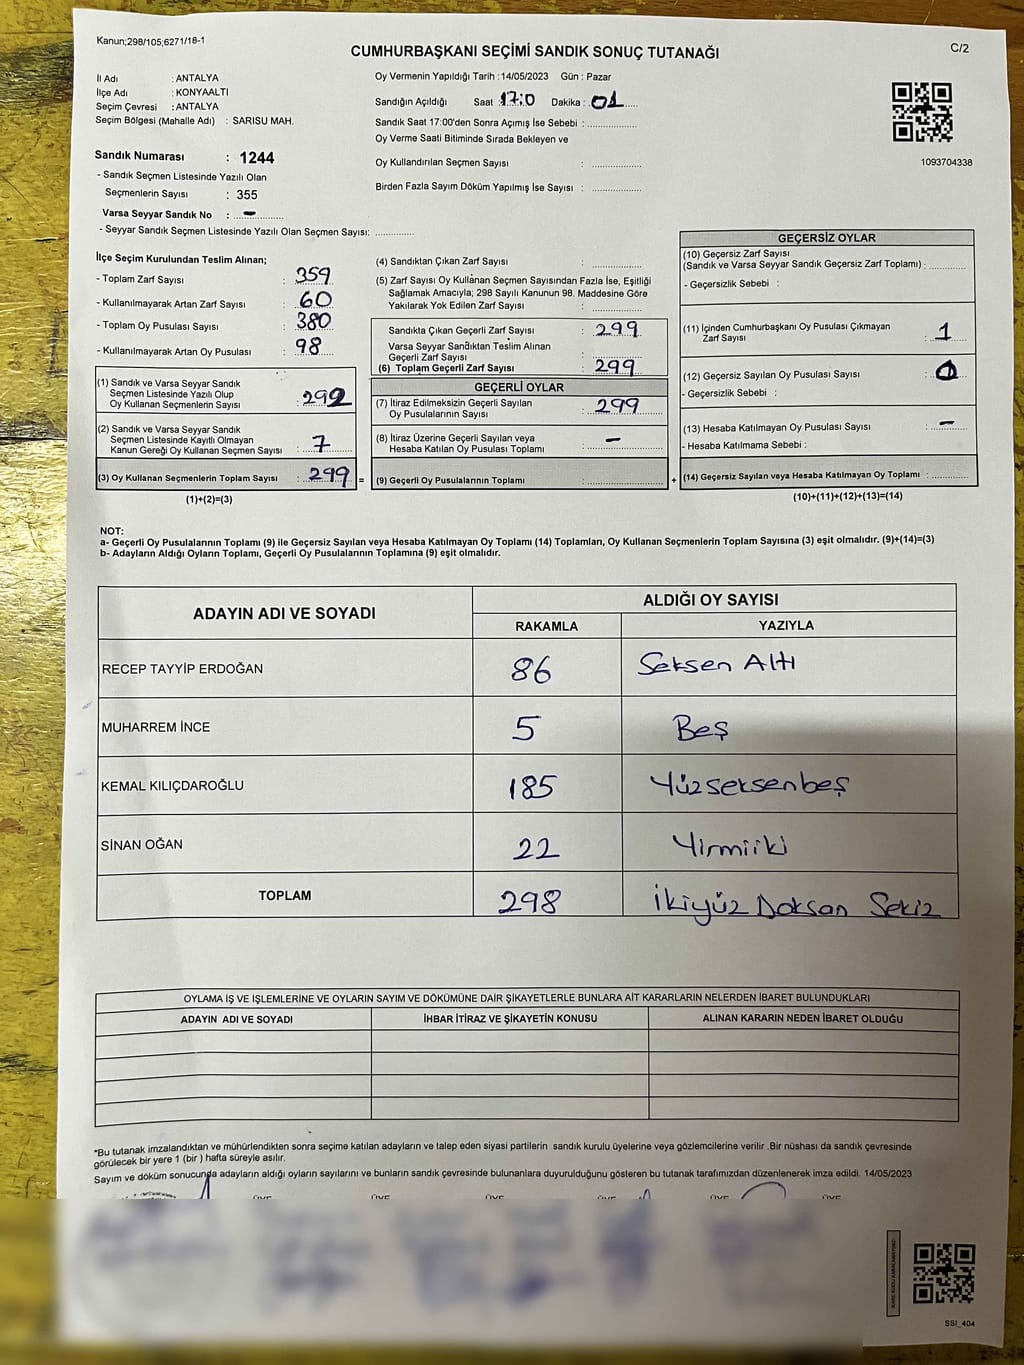 Kanun;298/105;6271/18-1
CUMHURBAŞKANI SEÇİMİ SANDIK SONUÇ TUTANAĞI
C/2
İl Adı : ANTALYA
İlçe Adı : KONYAALTI
Seçim Çevresi : ANTALYA
Seçim Bölgesi (Mahalle Adı) : SARISU MAH.
Oy Vermenin Yapıldığı Tarih :14/05/2023 Gün : Pazar
Sandığın Açıldığı Saat :17:0 Dakika : 01
Sandık Saat 17:00'den Sonra Açımış İse Sebebi :
Oy Verme Saati Bitiminde Sırada Bekleyen ve
Oy Kullandırılan Seçmen Sayısı :
Birden Fazla Sayım Döküm Yapılmış İse Sayısı :
1093704338
Sandık Numarası : 1244
- Sandık Seçmen Listesinde Yazılı Olan
Seçmenlerin Sayısı : 355
Varsa Seyyar Sandık No : -
- Seyyar Sandık Seçmen Listesinde Yazılı Olan Seçmen Sayısı:
İlçe Seçim Kurulundan Teslim Alınan;
- Toplam Zarf Sayısı : 359
- Kullanılmayarak Artan Zarf Sayısı : 60
- Toplam Oy Pusulası Sayısı : 380
- Kullanılmayarak Artan Oy Pusulası : 98
(1) Sandık ve Varsa Seyyar Sandık
Seçmen Listesinde Yazılı Olup
Oy Kullanan Seçmenlerin Sayısı : 292
(2) Sandık ve Varsa Seyyar Sandık
Seçmen Listesinde Kayıtlı Olmayan
Kanun Gereği Oy Kullanan Seçmen Sayısı : 7
(3) Oy Kullanan Seçmenlerin Toplam Sayısı : 299 =
(1)+(2)=(3)
(4) Sandıktan Çıkan Zarf Sayısı :
(5) Zarf Sayısı Oy Kullanan Seçmen Sayısından Fazla İse, Eşitliği
Sağlamak Amacıyla; 298 Sayılı Kanunun 98. Maddesine Göre
Yakılarak Yok Edilen Zarf Sayısı :
Sandıkta Çıkan Geçerli Zarf Sayısı : 299
Varsa Seyyar Sandıktan Teslim Alınan
Geçerli Zarf Sayısı :
(6) Toplam Geçerli Zarf Sayısı : 299
GEÇERLİ OYLAR
(7) İtiraz Edilmeksizin Geçerli Sayılan
Oy Pusulalarının Sayısı : 299
(8) İtiraz Üzerine Geçerli Sayılan veya
Hesaba Katılan Oy Pusulası Toplamı : -
(9) Geçerli Oy Pusulalarının Toplamı : +
GEÇERSİZ OYLAR
(10) Geçersiz Zarf Sayısı
(Sandık ve Varsa Seyyar Sandık Geçersiz Zarf Toplamı) :
- Geçersizlik Sebebi :
(11) İçinden Cumhurbaşkanı Oy Pusulası Çıkmayan
Zarf Sayısı : 1
(12) Geçersiz Sayılan Oy Pusulası Sayısı : 0
- Geçersizlik Sebebi :
(13) Hesaba Katılmayan Oy Pusulası Sayısı : -
- Hesaba Katılmama Sebebi :
(14) Geçersiz Sayılan veya Hesaba Katılmayan Oy Toplamı :
(10)+(11)+(12)+(13)=(14)
NOT:
a- Geçerli Oy Pusulalarının Toplamı (9) ile Geçersiz Sayılan veya Hesaba Katılmayan Oy Toplamı (14) Toplamları, Oy Kullanan Seçmenlerin Toplam Sayısına (3) eşit olmalıdır. (9)+(14)=(3)
b- Adayların Aldığı Oyların Toplamı, Geçerli Oy Pusulalarının Toplamına (9) eşit olmalıdır.
ADAYIN ADI VE SOYADI
ALDIĞI OY SAYISI
RAKAMLA YAZIYLA
RECEP TAYYİP ERDOĞAN 86 Seksen Altı
MUHARREM İNCE 5 Beş
KEMAL KILIÇDAROĞLU 185 Yüzseksenbeş
SİNAN OĞAN 22 Yirmiiki
TOPLAM 298 İkiyüz Doksan Sekiz
OYLAMA İŞ VE İŞLEMLERİNE VE OYLARIN SAYIM VE DÖKÜMÜNE DAİR ŞİKAYETLERLE BUNLARA AİT KARARLARIN NELERDEN İBARET BULUNDUKLARI
ADAYIN ADI VE SOYADI İHBAR İTİRAZ VE ŞİKAYETİN KONUSU ALINAN KARARIN NEDEN İBARET OLDUĞU
*Bu tutanak imzalandıktan ve mühürlendikten sonra seçime katılan adayların ve talep eden siyasi partilerin sandık kurulu üyelerine veya gözlemcilerine verilir .Bir nüshası da sandık çevresinde
görülecek bir yere 1 (bir ) hafta süreyle asılır.
Sayım ve döküm sonucunda adayların aldığı oyların sayılarını ve bunların sandık çevresinde bulunanlara duyurulduğunu gösteren bu tutanak tarafımızdan düzenlenerek imza edildi. 14/05/2023
ÜYE ÜYE ÜYE ÜYE ÜYE ÜYE
SSI_404